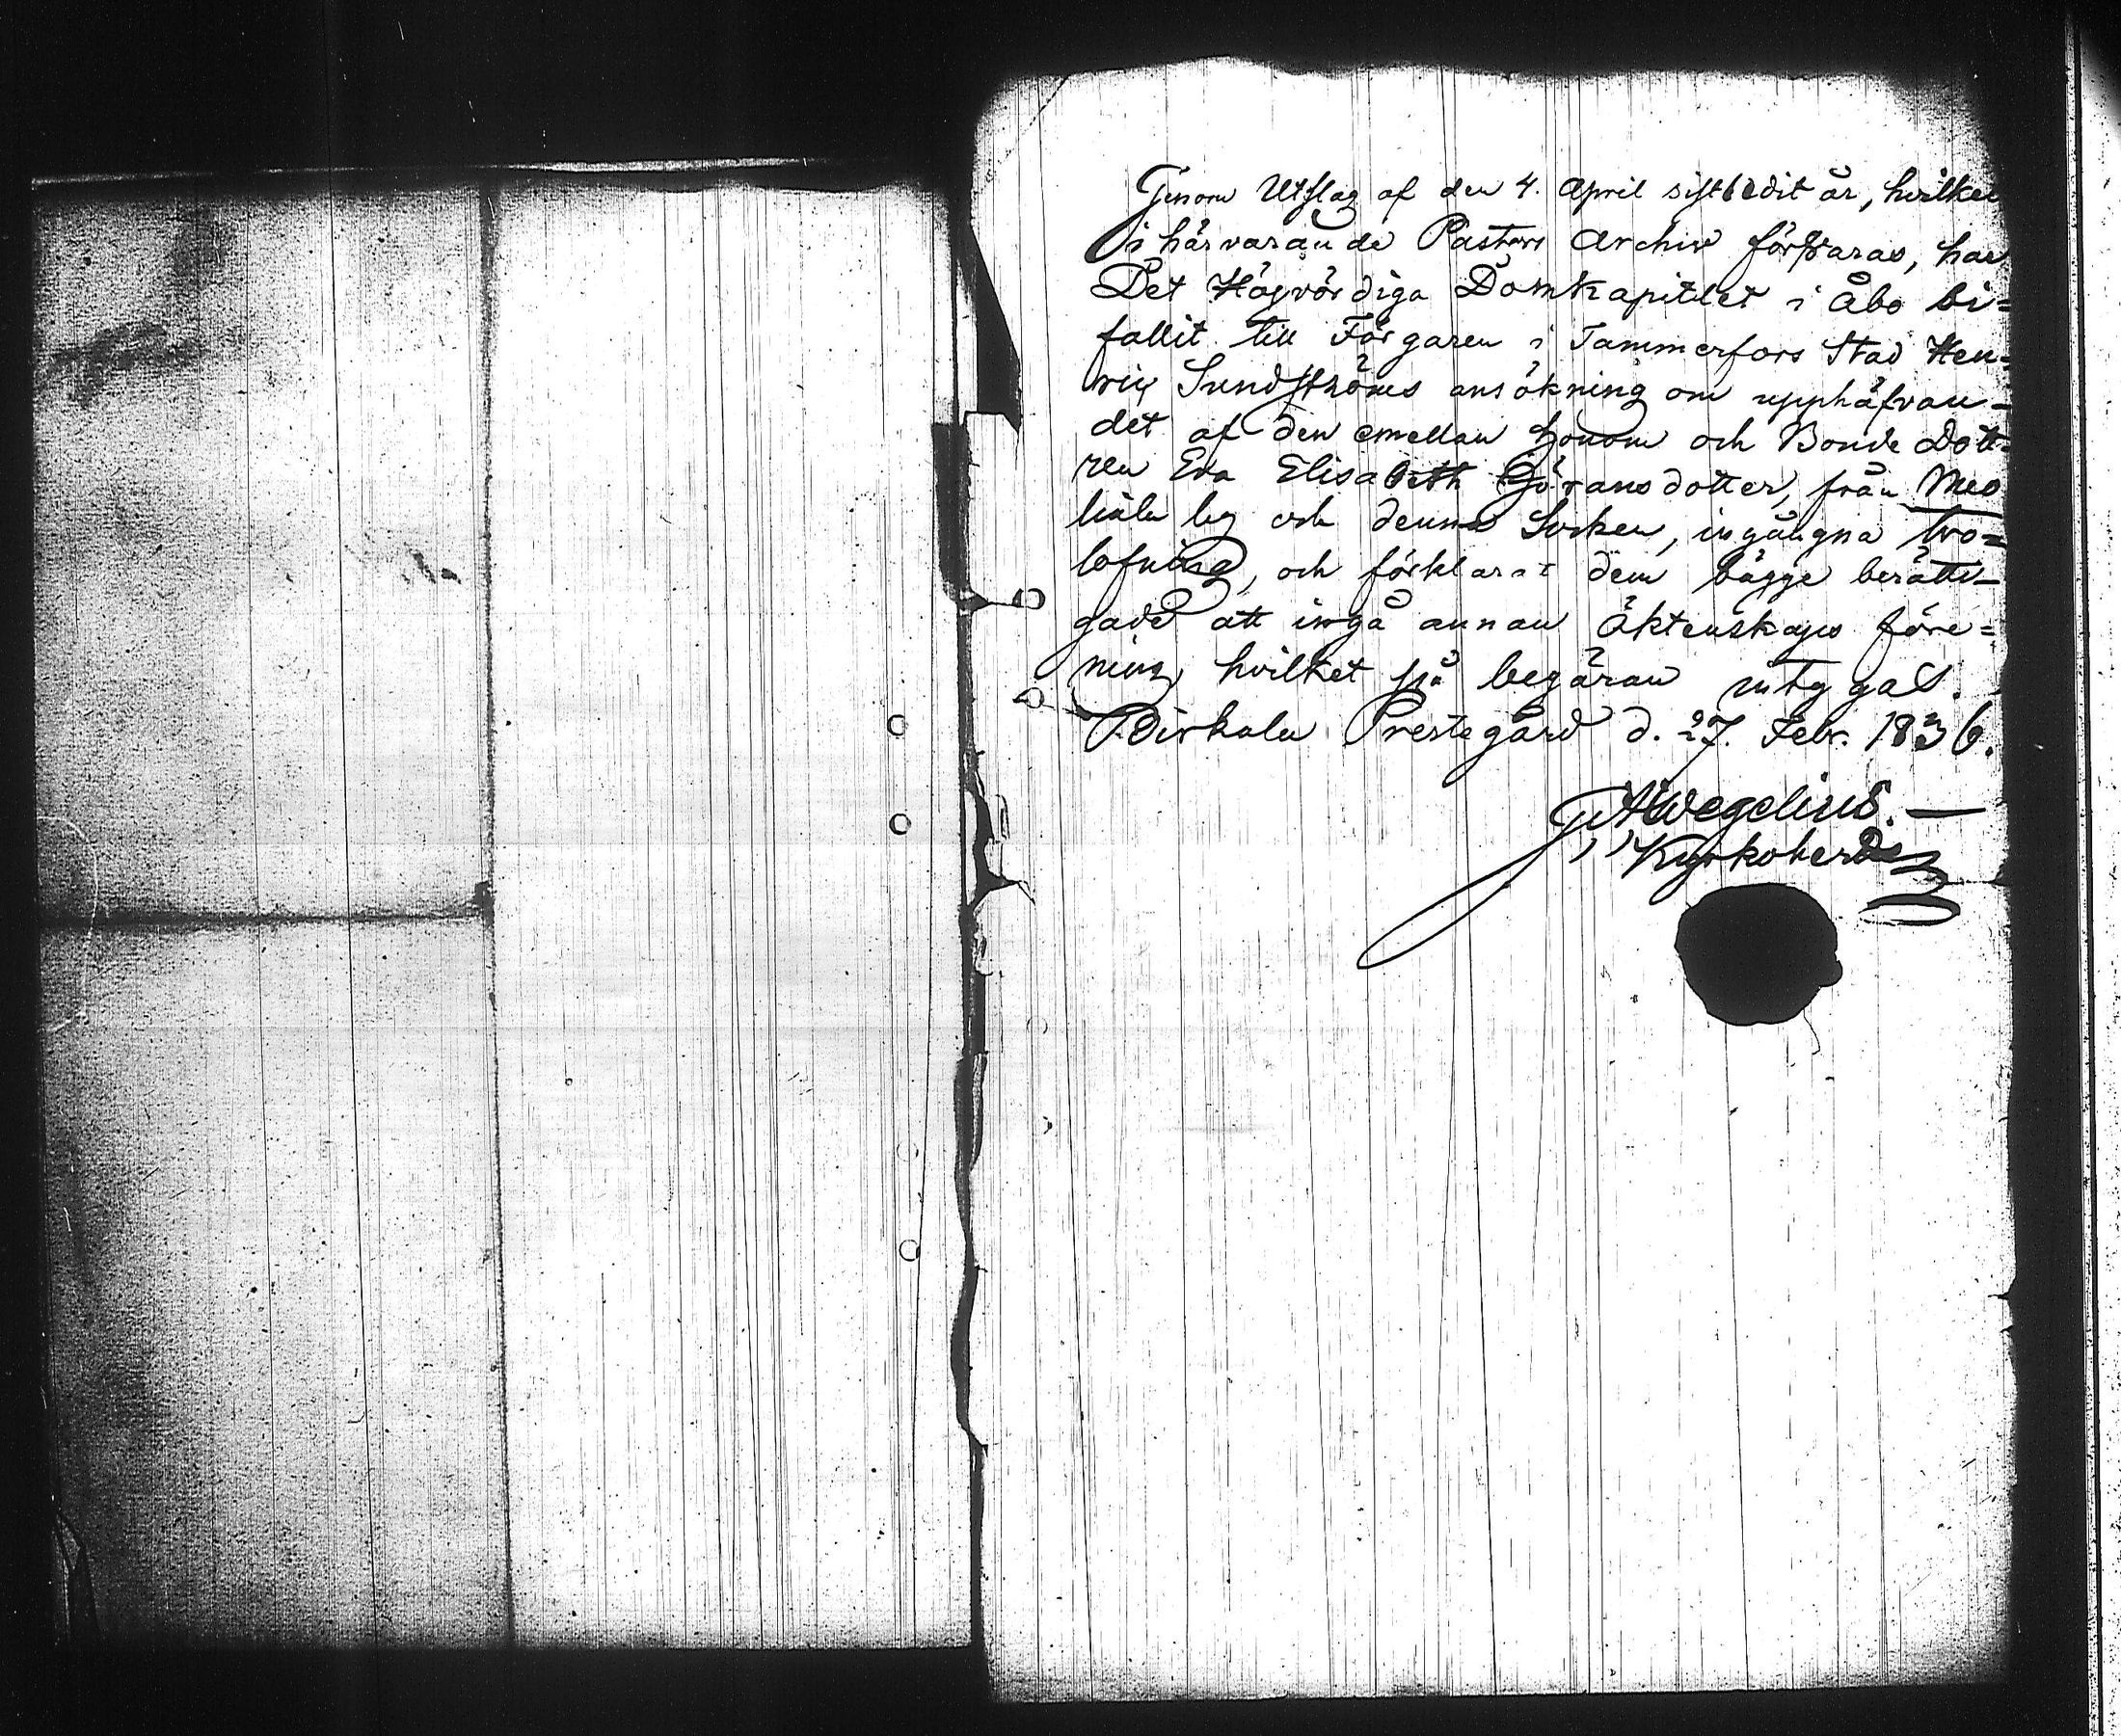 Genom Utslag af den 4. April sistledit år, hvilket
i härvarande Pastors Archiv förvaras, har
Det Högvördiga Domkapitlet i Åbo bi=
fallit till Färgaren i Tammerfors Stad Hen=
ric Sundströms ansökning om upphäfvan=
det af den emellan honom och Bonde Dott=
ren Eva Elisabeth Göransdotter, från
by och denna Socken, ingångna tro=
lofning, och förklarat dem bägge berätti=
gade att ingå annan Äktenskaps före=
ning, hvilket på begäran intygas.
Birkala Prestegård d. 27. Febr. 1836.
Wegelius.
Kyrkoherde